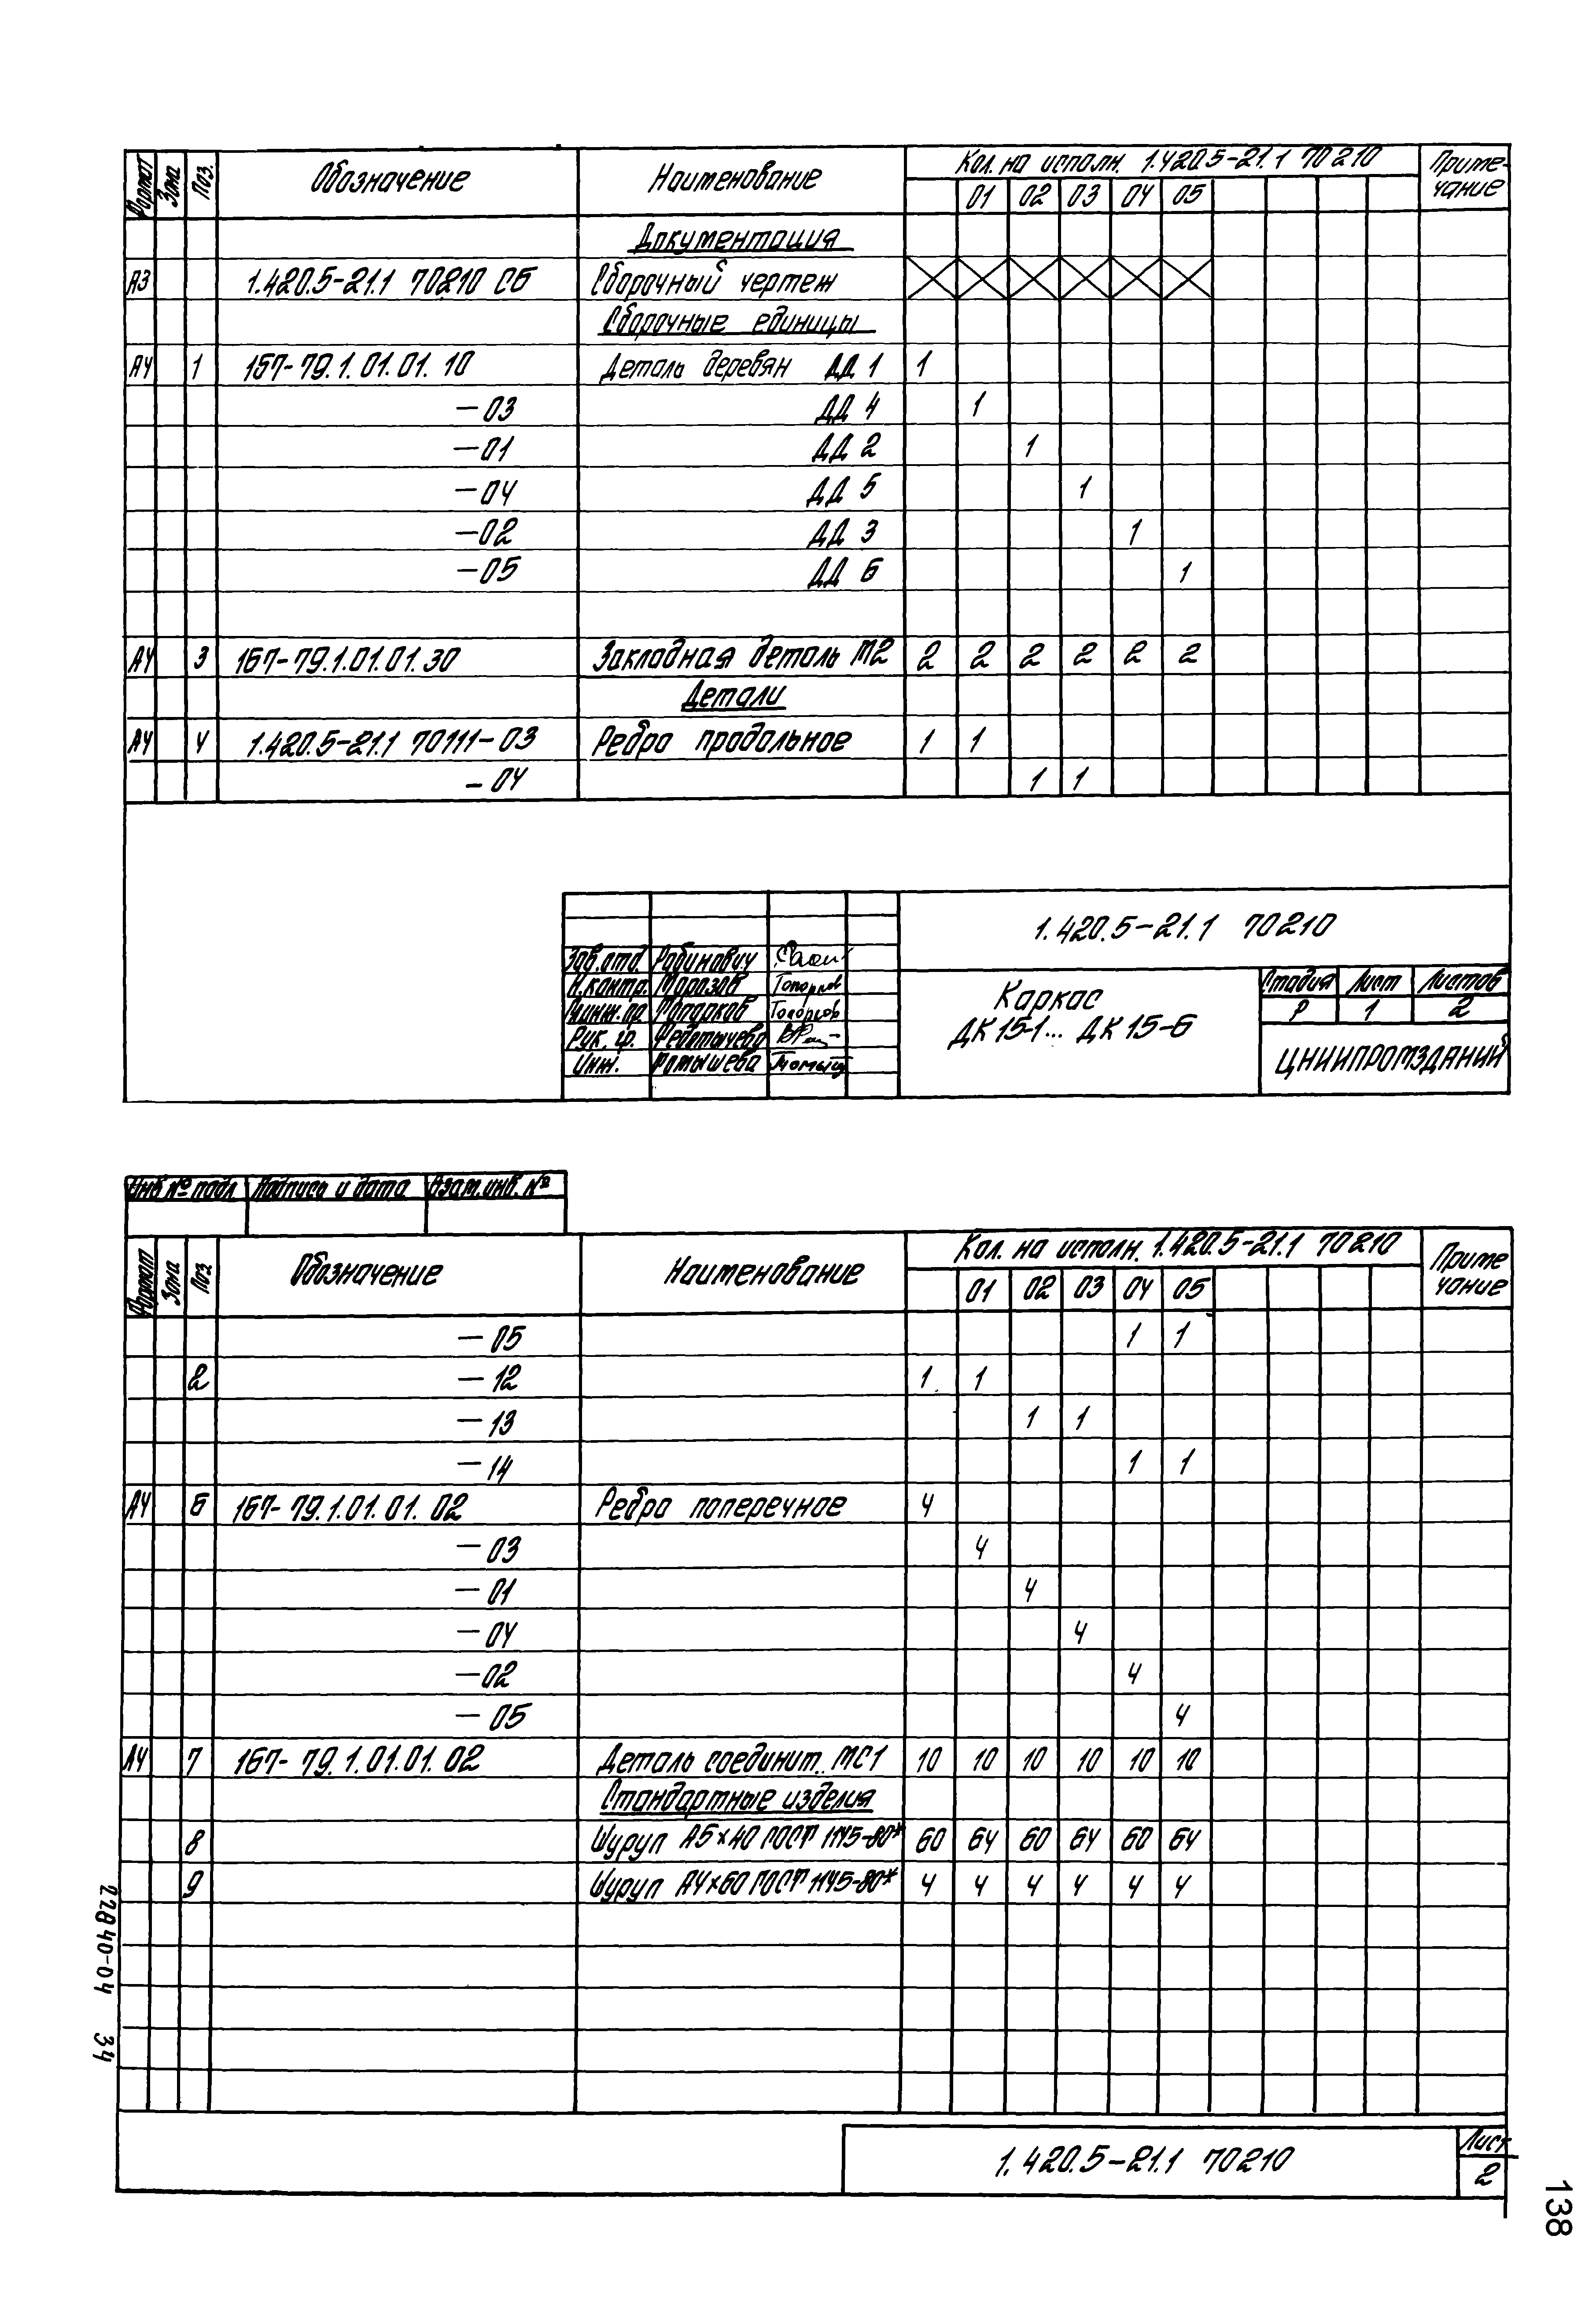 Формат Зона Поз. Обозначение Наименование Кол. на исполн. 1.420.5-21.1 70210 Приме-чание
01 02 03 04 05
Документация
А3 1.420.5-21.1 70210 СБ Сборочный чертеж
Сборочные единицы
А4 1 167-79.1.01.01.10 Деталь деревян ДД 1 1
—03 ДД 4 1
—01 ДД 2 1
—04 ДД 5 1
—02 ДД 3 1
—05 ДД 6 1
А4 3 167-79.1.01.01.30 Закладная деталь М2 2 2 2 2 2 2
Детали
А4 4 1.420.5-21.1 70111-03 Ребро продольное 1 1
-04 1 1
1.420.5-21.1 70210
Зав.отд. Рабинович
Н.контр. Морозов Топорков
Гл.инж.пр. Топорков Топорков
Рук. гр. Федотычева
Инж. Томышева Томыш
Каркас
ДК 15-1... ДК 15-6
Стадия Лист Листов
Р 1 2
ЦНИИПРОМЗДАНИЙ
Инв № подл Подпись и дата Взам.инв. №
Формат Зона Поз Обозначение Наименование Кол. на исполн. 1.420.5-21.1 70210 Приме чание
01 02 03 04 05
—05 1 1
2 —12 1 1
—13 1 1
—14 1 1
А4 6 167-79.1.01.01.02 Ребро поперечное 4
—03 4
—01 4
—04 4
—02 4
—05 4
А4 7 167-79.1.01.01.02 Деталь соединит. МС1 10 10 10 10 10 10
Стандартные изделия
8 Шуруп А5×40 ГОСТ 1145-80* 60 64 60 64 60 64
9 Шуруп А4×60 ГОСТ 1145-80* 4 4 4 4 4 4
22840-04 34
1.420.5-21.1 70210
Лист
2
138